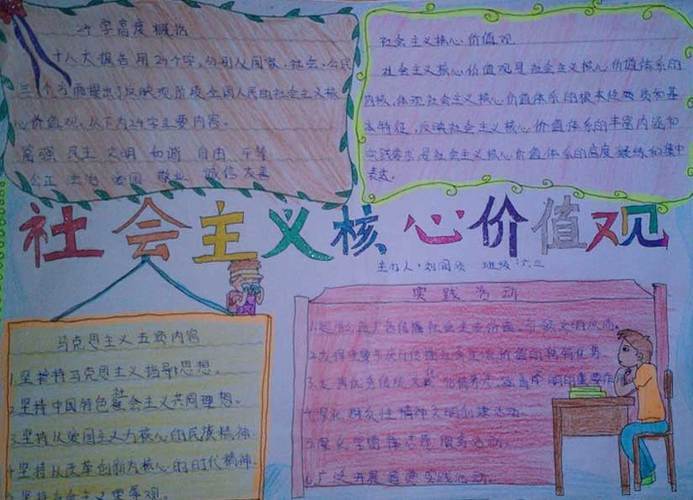 24字高度概括
十八大报告用24个字,分别从国家、社会、公民
三个方面提出了反映现阶段全国人民的社会主义核
心价值观,以下为24字主要内容。
富强 民主 文明 和谐 自由 平等
公正 法治 爱国 敬业 诚信友善
社会主义核心价值观
社会主义核心价值观是社会主义核心价值体系的
内核,体现社会主义核心价值体系的根本性质和基
本特征,反映社会主义核心价值体系的丰富内涵和
实践要求,是社会主义核心价值体系的高度凝练和集中
表达。
社会主义核心价值观
主办人:刘 班级:六三
马克思主义五项内容
1.坚持马克思主义指导思想。
2.坚持中国特色社会主义共同理想。
3.坚持以爱国主义为核心的民族精神.
4.坚持以改革创新为核心的时代精神.
坚持社会主义荣辱观。
实践活动
1.
2.发挥
3.发挥优秀传统文化 的重要作用
4.深化群众性精神文明创建活动.
5.深入开展 志愿服务活动.
6.广泛开展道德实践活动.